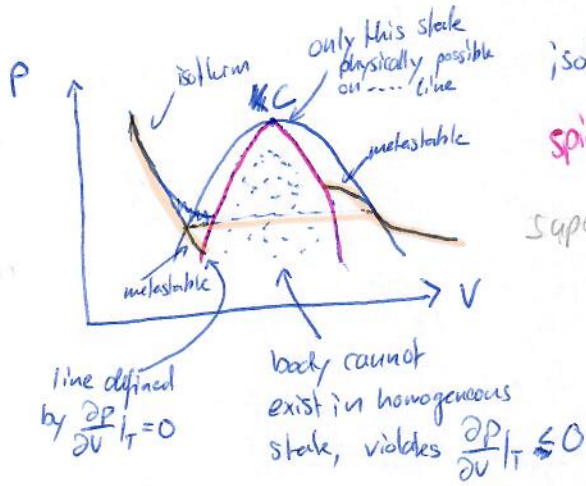 P
isotherm
C
only this state
physically possible
on ..... line
metastable
iso
spi
supe
metastable
V
line defined
by ∂P/∂V |_T = 0
body cannot
exist in homogeneous
state, violates ∂P/∂V |_T ≤ 0